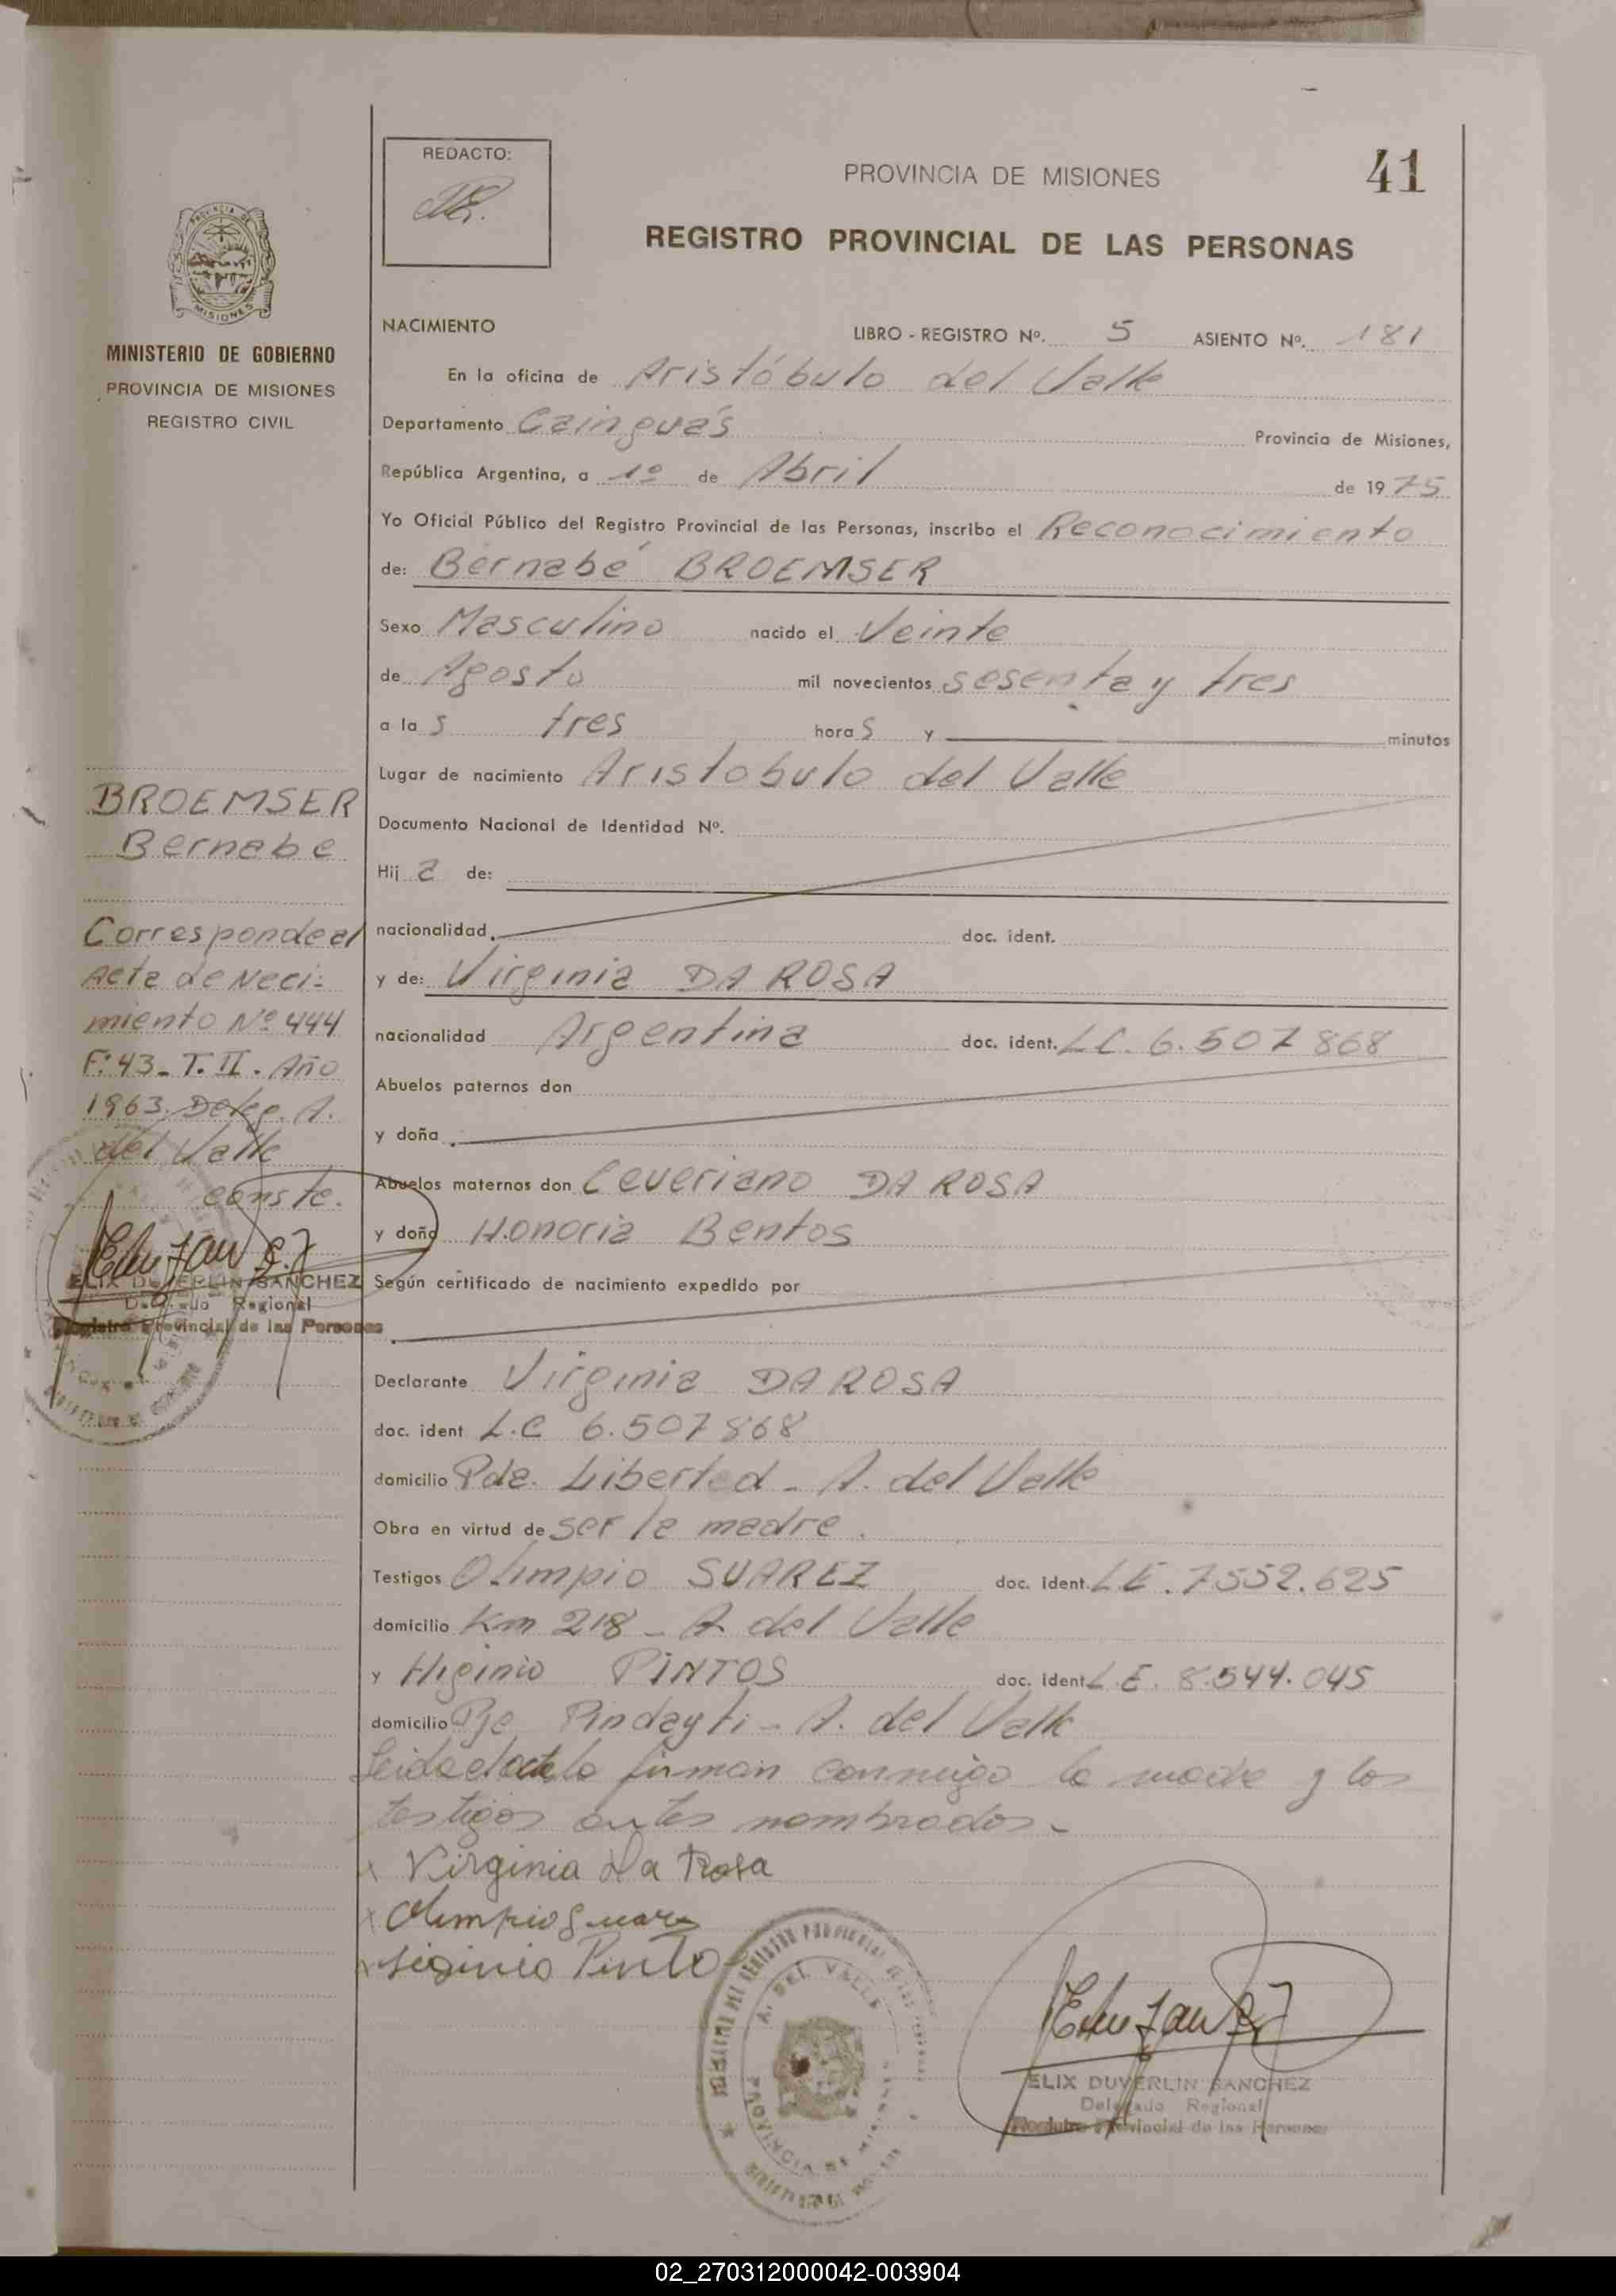 REDACTO:
PROVINCIA DE MISIONES
41
REGISTRO PROVINCIAL DE LAS PERSONAS
MISIONES
MINISTERIO DE GOBIERNO
PROVINCIA DE MISIONES
REGISTRO CIVIL
NACIMIENTO LIBRO - REGISTRO Nº. 5 ASIENTO Nº. 181
En la oficina de Aristóbulo del Valle
Departamento Cainguás Provincia de Misiones,
República Argentina, a 1º de Abril de 1975
Yo Oficial Público del Registro Provincial de las Personas, inscribo el Reconocimiento
de: Bernabé BROEMSER
Sexo Masculino nacido el Veinte
de Agosto mil novecientos sesenta y tres
a las tres horas y minutos
Lugar de nacimiento Aristobulo del Valle
Documento Nacional de Identidad Nº.
Hija de:
nacionalidad doc. ident.
y de: Virginia DA ROSA
nacionalidad Argentina doc. ident. LC. 6.507868
Abuelos paternos don
y doña
Abuelos maternos don Ceveriano DA ROSA
y doña Honoria Bentos
Según certificado de nacimiento expedido por
Declarante Virginia DA ROSA
doc. ident L.C 6.507868
domicilio Pda. Libertad - A. del Valle
Obra en virtud de ser la madre.
Testigos Olimpio SUAREZ doc. ident. LE. 7552.625
domicilio Km 218 - A. del Valle
y Higinio PINTOS doc. ident L.E. 8.544.045
domicilio Pje Pindayti - A. del Valle
Leida el acta la firman conmigo la madre y los
testigos antes nombrados.-
x Virginia Da Rosa
x Olimpio Suarez
x Siginio Pinto
A. DEL VALLE
PROVINCIA DE MISIONES
ELIX DUVERLIN SANCHEZ
Delegado Regional
Registro Provincial de las Personas
BROEMSER
Bernabe
Corresponde al
Acta de Naci-
miento Nº 444
F: 43 - T. II. Año
1963. Deleg. A.
del Valle
conste.
ELIX DUVERLIN SANCHEZ
Delegado Regional
Registro Provincial de las Personas
02_270312000042-003904